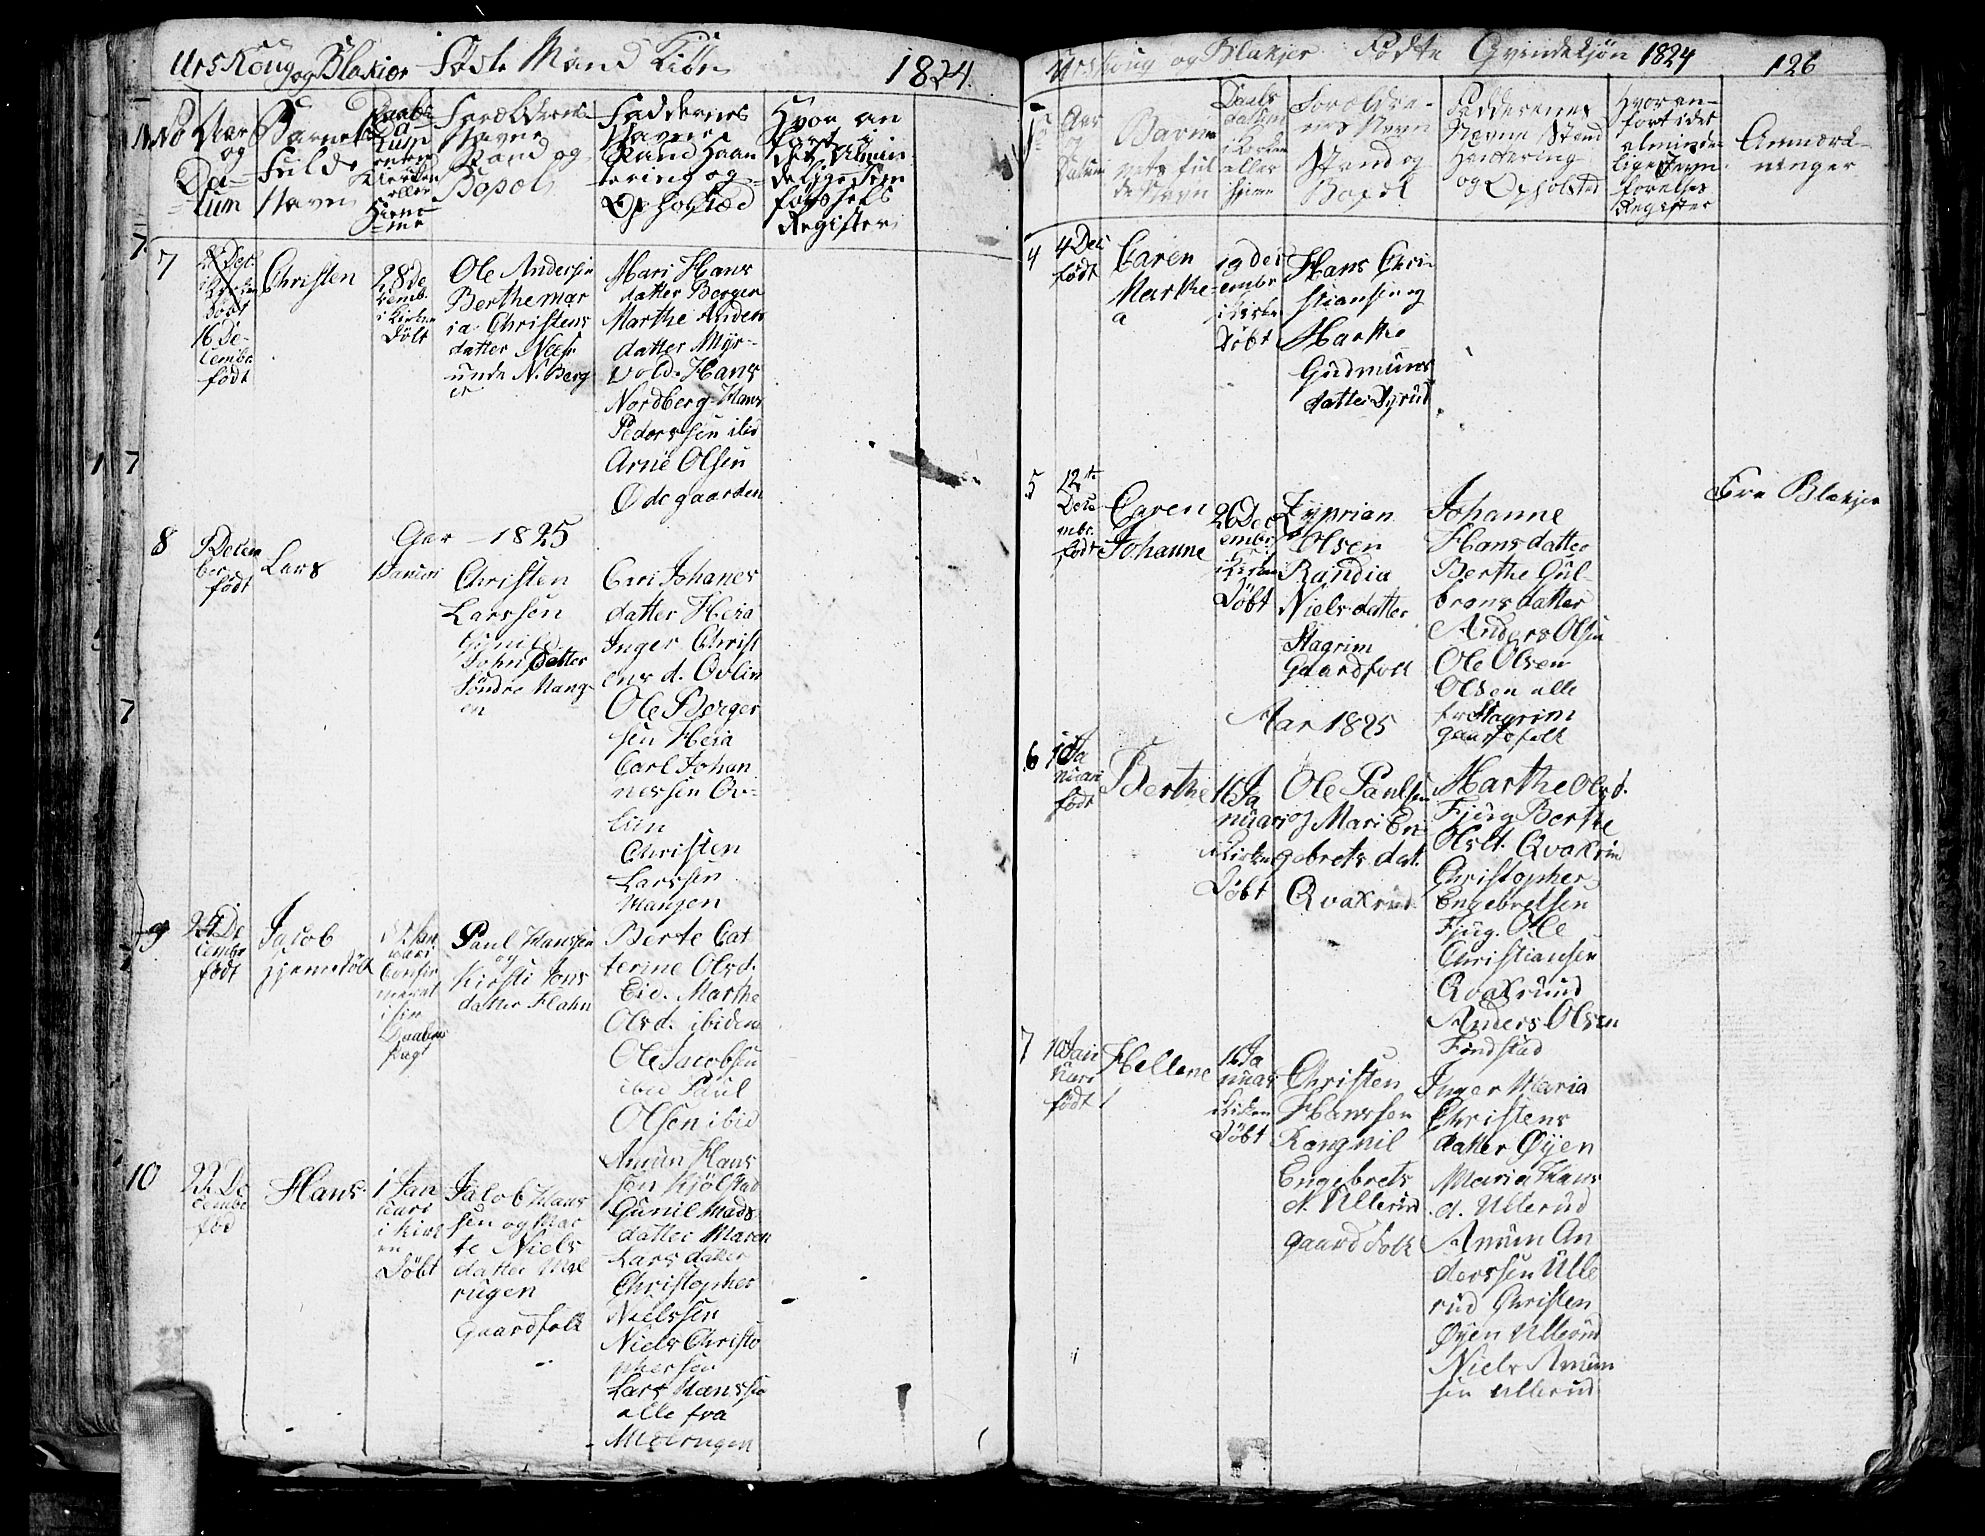 Urskoug og Blakier Føste Mand Kiøn 1824.
No
Aar
og
Da-
tum
Barnets
fulde
Navn
Daabs
Da-
tum
Kirken
eller
Hiem-
me
Forældrenes
Navne
Stand og
Bopæl
Faddernes
Navne
Stand Haan
tering og
Opholsted
Hvor an
ført i
det Almin
delige Jevn
førelsets
Register
7
16 De-
cembr.
født
Christen
28 De
cemb.
i Kirken
Døbt
Ole Andersen
Berthe Mar
ia Christens
datter Næs
unde N. Berg
er
Mari Hans
datter Berger
Marthe Anders
datter Myr-
vold. Hans
Nordberg Hans
Pedersen ibid
Arne Olsen
Ødegaarden
Aar 1825
8
Decem
ber
født
Lars
1 Januari
Christen
Larssen
Gunild
Johnsdatter
Søndre Mang-
en
Guri Johanes
datter Heia
Inger Christ
ens d. Ovlin
Ole Berger
sen Heia
Carl Johan
nessen Ov-
lin
Christen
Larssen
Mangen
9
24 De
cembr
født
Jacob
hjemedøbt
Januari
Confir
meret
Paul Hanssen
og
Kirsti Jons
datter Flahn
Berte Cat
terine Olsd.
Eid. Marthe
Olsd. ibidem
Ole Jacobsen
ibid Paul
Olsen ibid
10
22 De
cembr
fød
Hans
1 Jan
uari
i Kirk
en
Døbt
Jacob Hans
sen og Mar
te Niels
datter Mæl
rugen
Gaardfolk
Amun Hans
sen Kjølstad
Gunil Mads
datter Maren
Lars datter
Christopher
Nielssen
Niels Christo
phersen
Lars Hanssen
alle fra
Mælrugen
Urskoug og Blakier Fødte Qvindekjøn 1824 126
Aar
Datum
Barne
nets ful
de Navn
Daabs
datum
i Kirken
eller
hjeme
Forældre-
nes Navn
Stand og
Bopæl
Faddernes
Navne Stand
Handtering
og Opholsted
Hvor an-
ført i det
almindelige
Jevn
førelses
Register
Anmærk-
ninger
4
4 Dec
født
Caren
Marthe
a
19 Dec
embr
i Kirken
Døbt
Hans Chri-
stiansen og
Marthe
Gudmuns
datter Dyrud
5
12te
Dece
mbr.
født
Caren
Johanne
26 Dec
embr
i Kirken
Døbt
Zyprian
Olsen
Randia
Nielsdatter
Hagrim
Gaardfolk
Johanne
Hansdatter
Berthe Gul-
bransdatter
Anders Olsen
Ole Olsen
Olsen alle
fra Hagrim
gaardfolk
Fra Blakjer
Aar 1825
6
Ja
nuari
født
Berthe
16 Ja
nuari
i Kirken
Døbt
Ole Paulsen
og Mari En
gebrets dat.
Qvakrud
Marthe Olsd.
Fjug Berthe
Olsdt. Qvakrud
Christopher
Engebretsen
Fjug. Ole
Christiansen
Qvakruud
Anders Olsen
Findstad
7
10 Jan
uari
født
Hellene
16 Ja
nuari
i Kirken
Døbt
Christen
Hanssen
Rangnil
Engebrets
d. Ullerud
Gaardfolk
Inger Maria
Christens
datter Øyen
Maria Hans
d. Ullerud
Amun An
derssen Ulle
rud Christen
Øyen Ullerud
Niels Amun
sen Ullerud